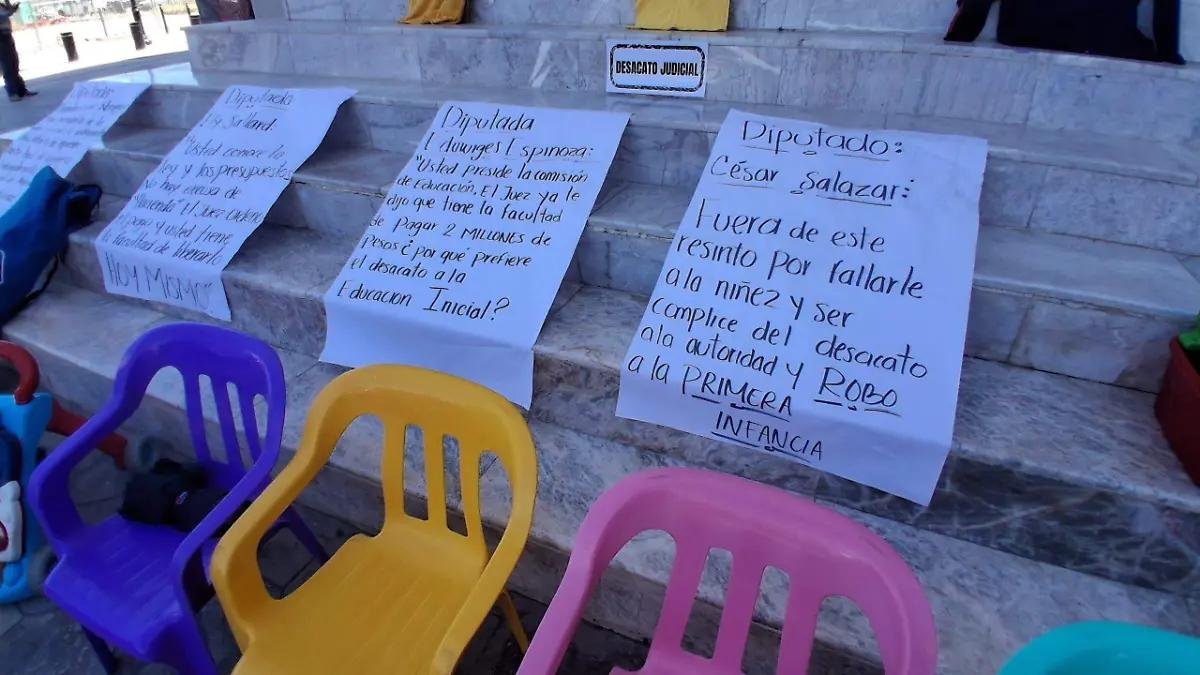 DESACATO JUDICIAL
Diputada
Sallard:
"Usted conoce la
ley y los presupuestos
No hay excusa de
El Juez ordenó
el pago y usted tiene
la facultad de liberarlo
HOY MISMO"
Diputada
Eduwiges Espinoza:
"Usted preside la comisión
de Educación, El Juez ya le
dijo que tiene la facultad
de Pagar 2 MILLONES de
Pesos ¿por qué prefiere
el desacato a la
Educacion Inicial?
Diputado:
César Salazar:
Fuera de este
resinto por fallarle
a la niñez y ser
complice del desacato
a la autoridad y ROBO
a la PRIMERA
INFANCIA